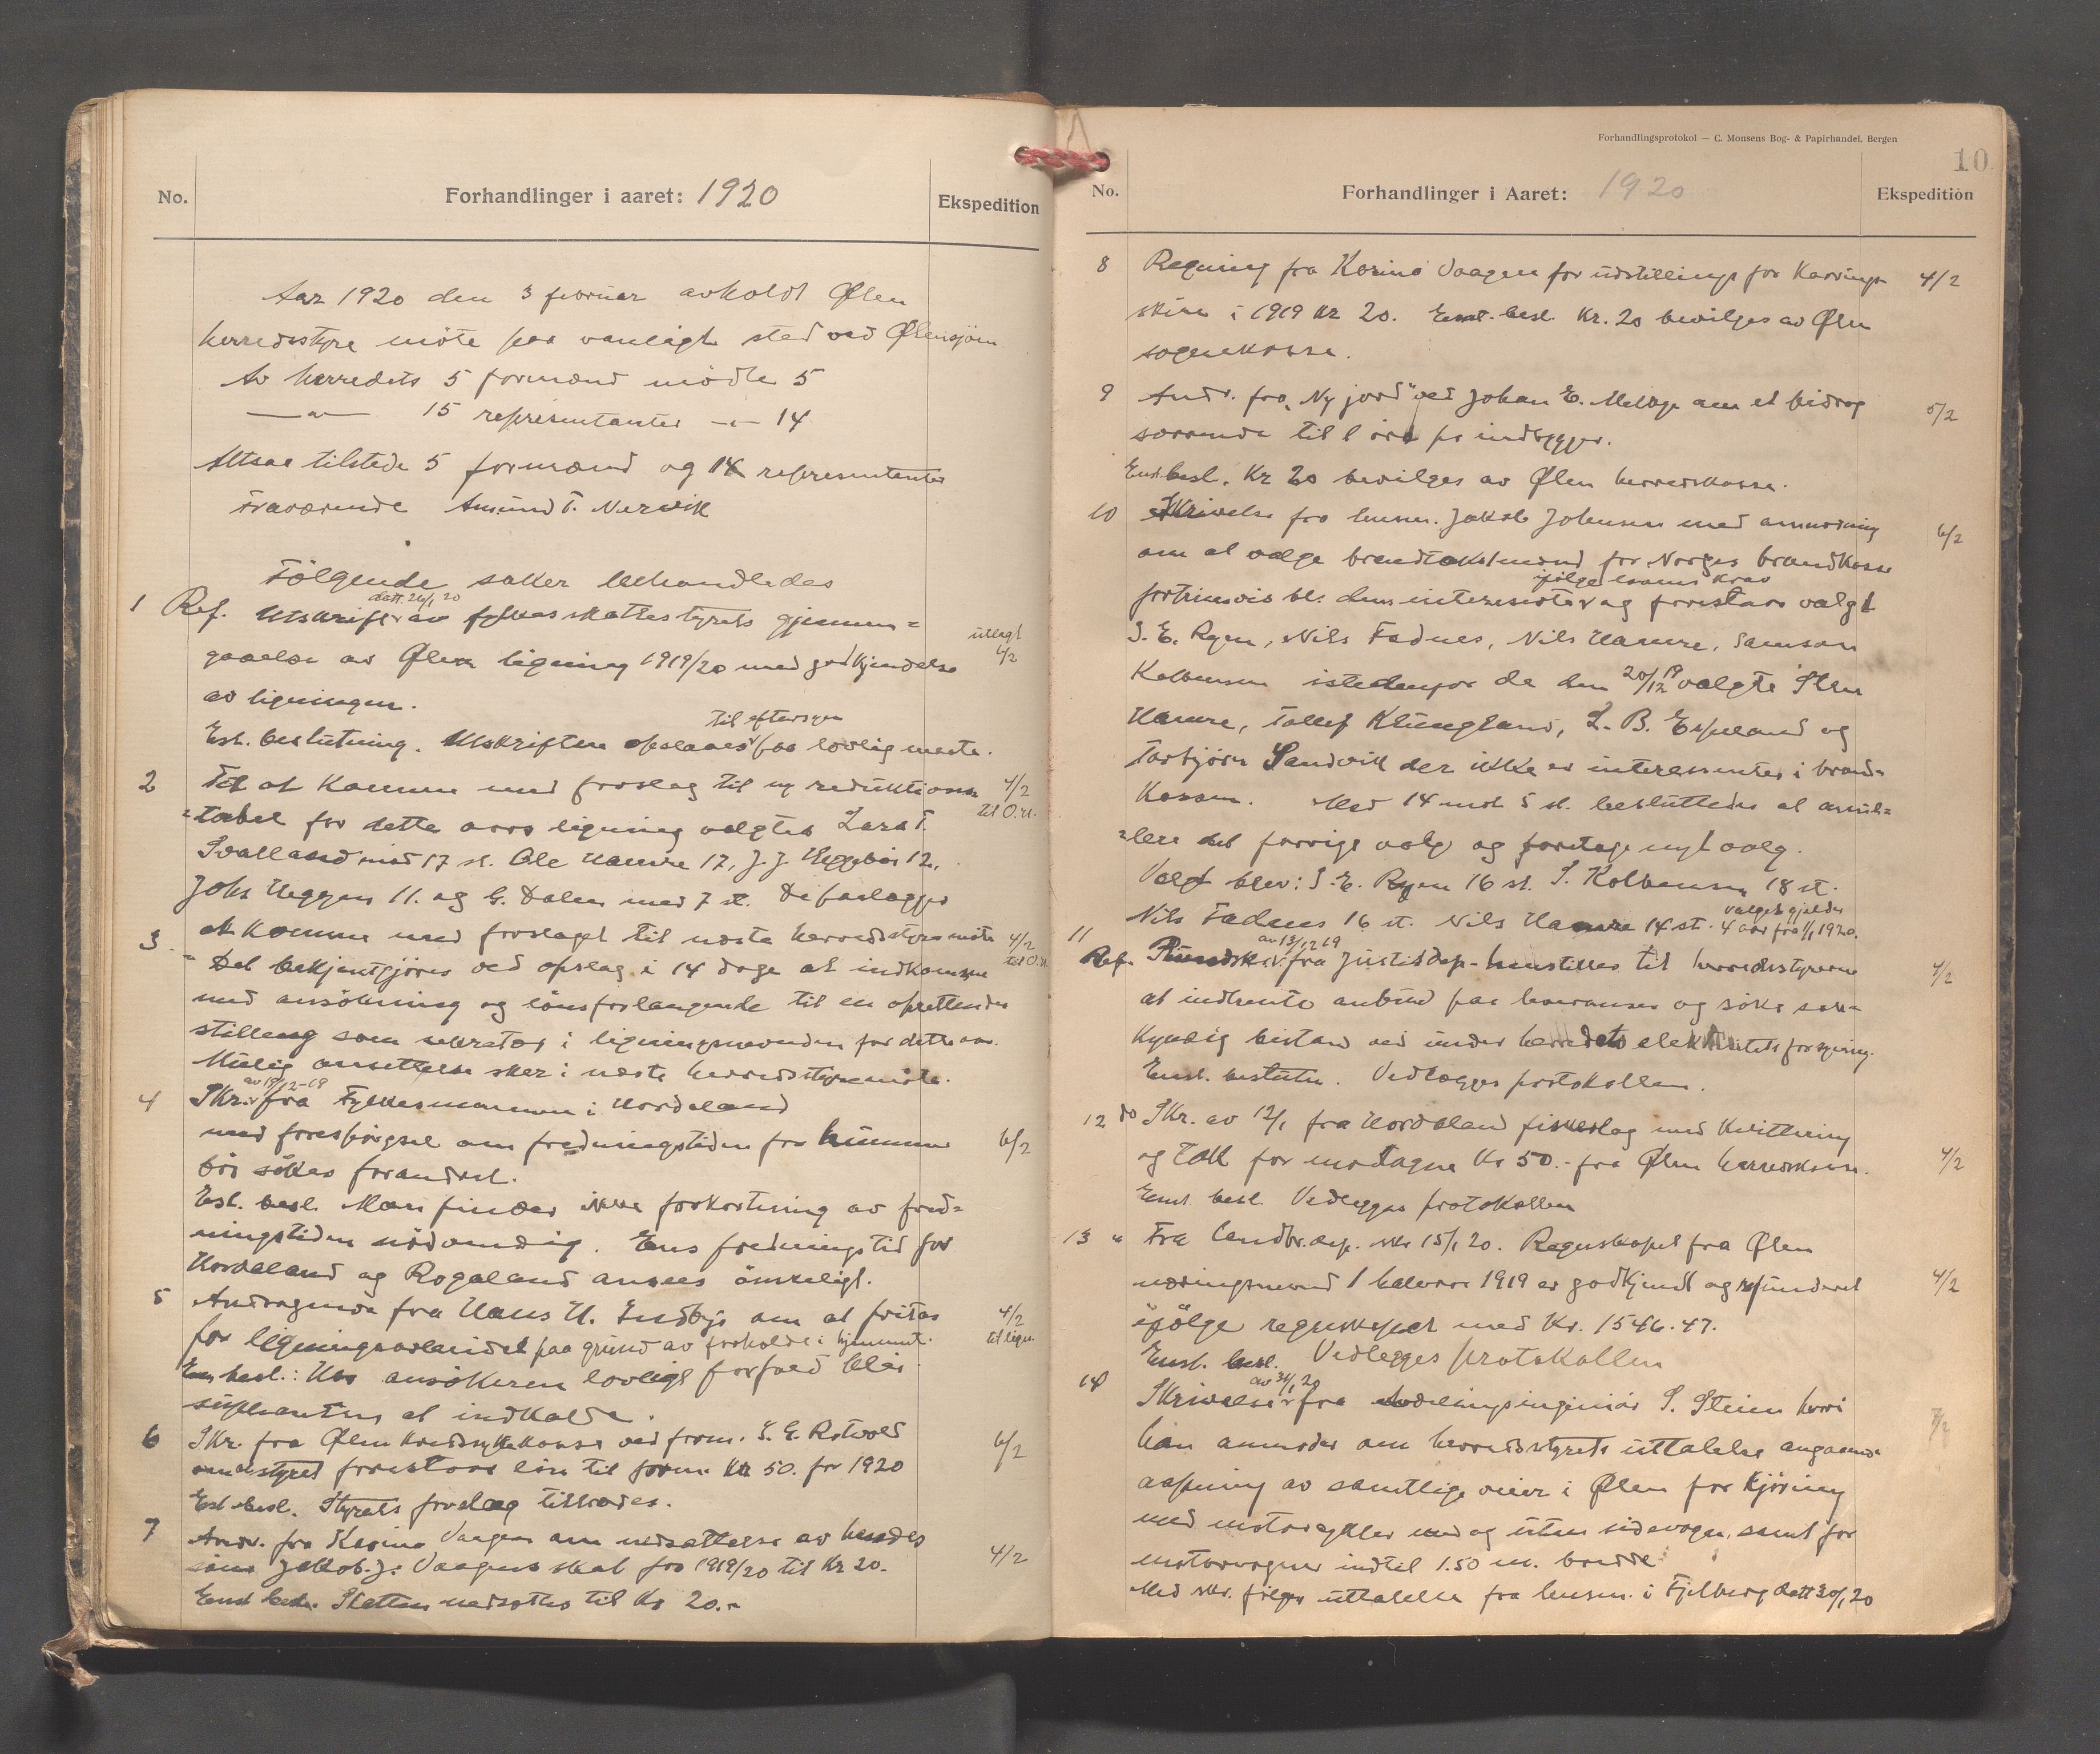 No.
Forhandlinger i aaret: 1920
Ekspedition
Aar 1920 den 3 februar avholdt Ølen
herredsstyre möte paa vanligt sted ved Ølensjøen
Av herredets 5 formænd mödte 5
—„— 15 representanter —„— 14
Altsaa tilstede 5 formænd og 14 representanter
Fraværende Amund T. Nervik
Fölgende saker behandledes
1 Ref. Utskrift datt. 26/1 20 av fylkesskattestyrets gjennem=
gaaelse av Ølen ligning 1919/20 med godkjendelse
utlagt 4/2
av ligningen.
Est. beslutning. Utskriften opslaaes til eftersyn paa lovlig maate.
2 Til at komme med forslag til ny reduktions
4/2
=tabel for dette aars ligning valgtes Lars T.
til O.H.
Svalland med 17 st. Ole Hamre 17, J. J. Heggebø 12,
Johs Heggen 11. og G. Dalen med 7 st. De paalægges
at komme med forslaget til næste herredsstyremöte
3 Det bekjentgjöres ved opslag i 14 dage at indkomme
4/2
med ansökning og lönsforlangende til en oprettendes
stilling som sekretær i ligningsnevnden for dette aar.
Mulig ansettelse sker i næste herredsstyremöte.
4 Skr. av 19/12-19 fra Fylkesmannen i Hordaland
med forespörgsel om fredningstiden for hummer
6/2
bör sökes forandret.
Est. besl. Man finder ikke forkortning av fred=
ningstiden nödvendig. Ens fredningstid for
Hordaland og Rogaland ansees önskeligt.
5 Andragende fra Hans H. Indbjo om at fritas
4/2
for ligningsarbeidet paa grund av forholde i hjemmet.
til lign.
Ens besl.: Hvis ansökeren lovligt forfald blir
suplianten at indkalde.
6 Skr. fra Ølen kredssykekasse ved form. S. E. Rotvold
6/2
styret foreslaar lön til form. Kr 50. for 1920
Est. besl. Styrets forslag tiltrædes.
7 Andr. fra Karina Vaagen om nedsættelse av hendes
4/2
söns Jakob J. Vaagens skat for 1919/20 til Kr 20.
Enst besl. Skatten nedsættes til Kr 20.-
Forhandlingsprotokol — C. Monsens Bog- & Papirhandel, Bergen
10
No.
Forhandlinger i Aaret: 1920
Ekspedition
8 Regning fra Karina Vaagen for udstillings for
4/2
i 1919 Kr 20. Enst. besl. Kr. 20 bevilges av Ølen
sognekasse.
9 Andr. fra „Ny jord" ved Johan E. Mellbye om et bidrag
5/2
svarende til 1 öre pr indbygger.
Enst besl. Kr 20 bevilges av Ølen herredskasse.
10 Skrivelse fra lensm. Jakob Johnsen med anmodning
6/2
om at vælge brandtakstmænd for Norges brandkasse
fortrinsvis bl. dem interesserte ifölge lovens krav og foreslaar valgt
S. E. Rygen, Nils Fadnes, Nils Hamre, Samson
Kolbensen istedenfor de den 20/12 19 valgte Sten
Hamre, Tollef Klungland, L. B. Espeland og
Torbjörn Sandvik der ikke er interessenter i brand-
kassen. Med 14 mot 5 st. besluttedes at annul=
=lere det forrige valg og foretage nyt valg.
Valgt blev: S. E. Rygen 16 st. S. Kolbensen 18 st.
Nils Fadnes 16 st. Nils Hamre 14 st. valget gjelder 4 aar fra 1/1 1920.
11 Ref. Rundskr. av 13/12 19 fra Justisdep. henstilles til herredsstyrerne
4/2
at indhente anbud paa leveranser og söke sak=
kyndig bistand ved under herredets elektricitetsforsyning.
Enst. beslutn. Vedlægges protokollen.
12 do Skr. av 12/1 fra Hordaland fiskeslag med kvittering
og takk for mottagne Kr 50.- fra Ølen herredskasse.
4/2
Enst besl. Vedlegges protokollen
13 „ Fra landbr.dep. skr 15/1 20. Regnskapet fra Ølen
næringsnevnd 1 halvaar 1919 er godkjendt og refunderet
4/2
ifölge regnskapet med Kr. 1546.47.
Enst. besl. Vedlegges protokollen
14 Skrivelse av 31/1 20 fra Avdelingsingeniör S. Steien hvori
7/2
han anmoder om herredsstyrets uttalelse angaaende
aapning av samtlige veier i Ølen for kjöring
med motorcykler med og uten sidevogn, samt for
motorvogner indtil 1.50 m. bredde.
Med skr. fölger uttalelse fra lensm. i Fjelberg datt 30/1 20